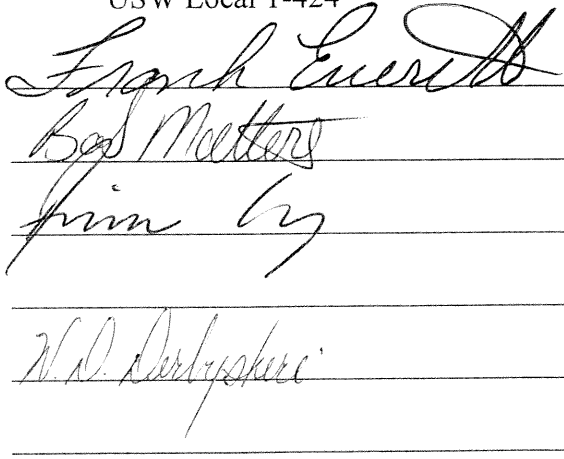 USW Local 1-424
Frank Everitt
Bob Matters
W. D. Derbyshire